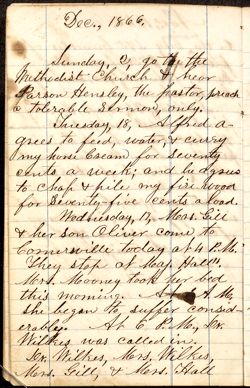 Dec., 1866.
Sunday, I go to the
Methodist Church & hear
Parson Hensley, the pastor, preach
a tolerable sermon, only.
Tuesday, 18, Alfred a-
grees to feed, water, & curry
my horse for seventy
cents a week; and he agrees
to chop & pile my fire wood
for seventy-five cents a load.
Wednesday, 19, Mrs. Gill
& her son Oliver come to
Connersville today at 4 P.M.
They stop at Maj. Hall's.
Mrs. Mooney took her bed
this morning. A.M.,
she began to suffer consid-
erably. At 6 P.M., Dr.
Wilkes was called in.
Dr. Wilkes, Mrs. Wilkes,
Mrs. Gill, & Mrs. Hall